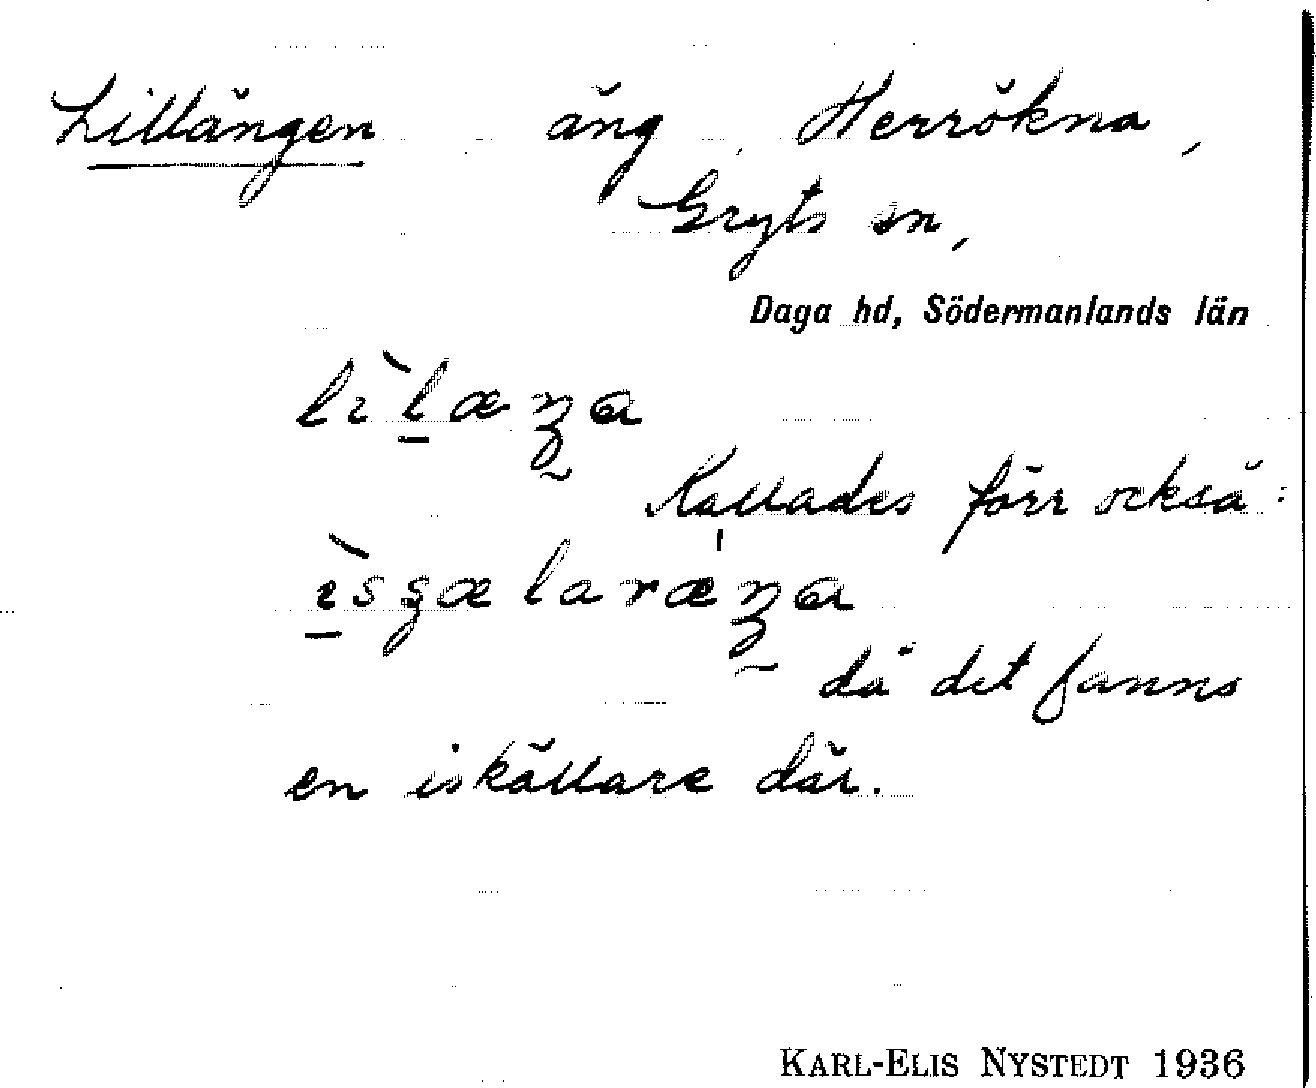 Lillängen äng, Herrökna,
Gryts sn,
Daga hd, Södermanlands län
Kallades förr också:
då det fanns
en iskällare där.
KARL-ELIS NYSTEDT 1936